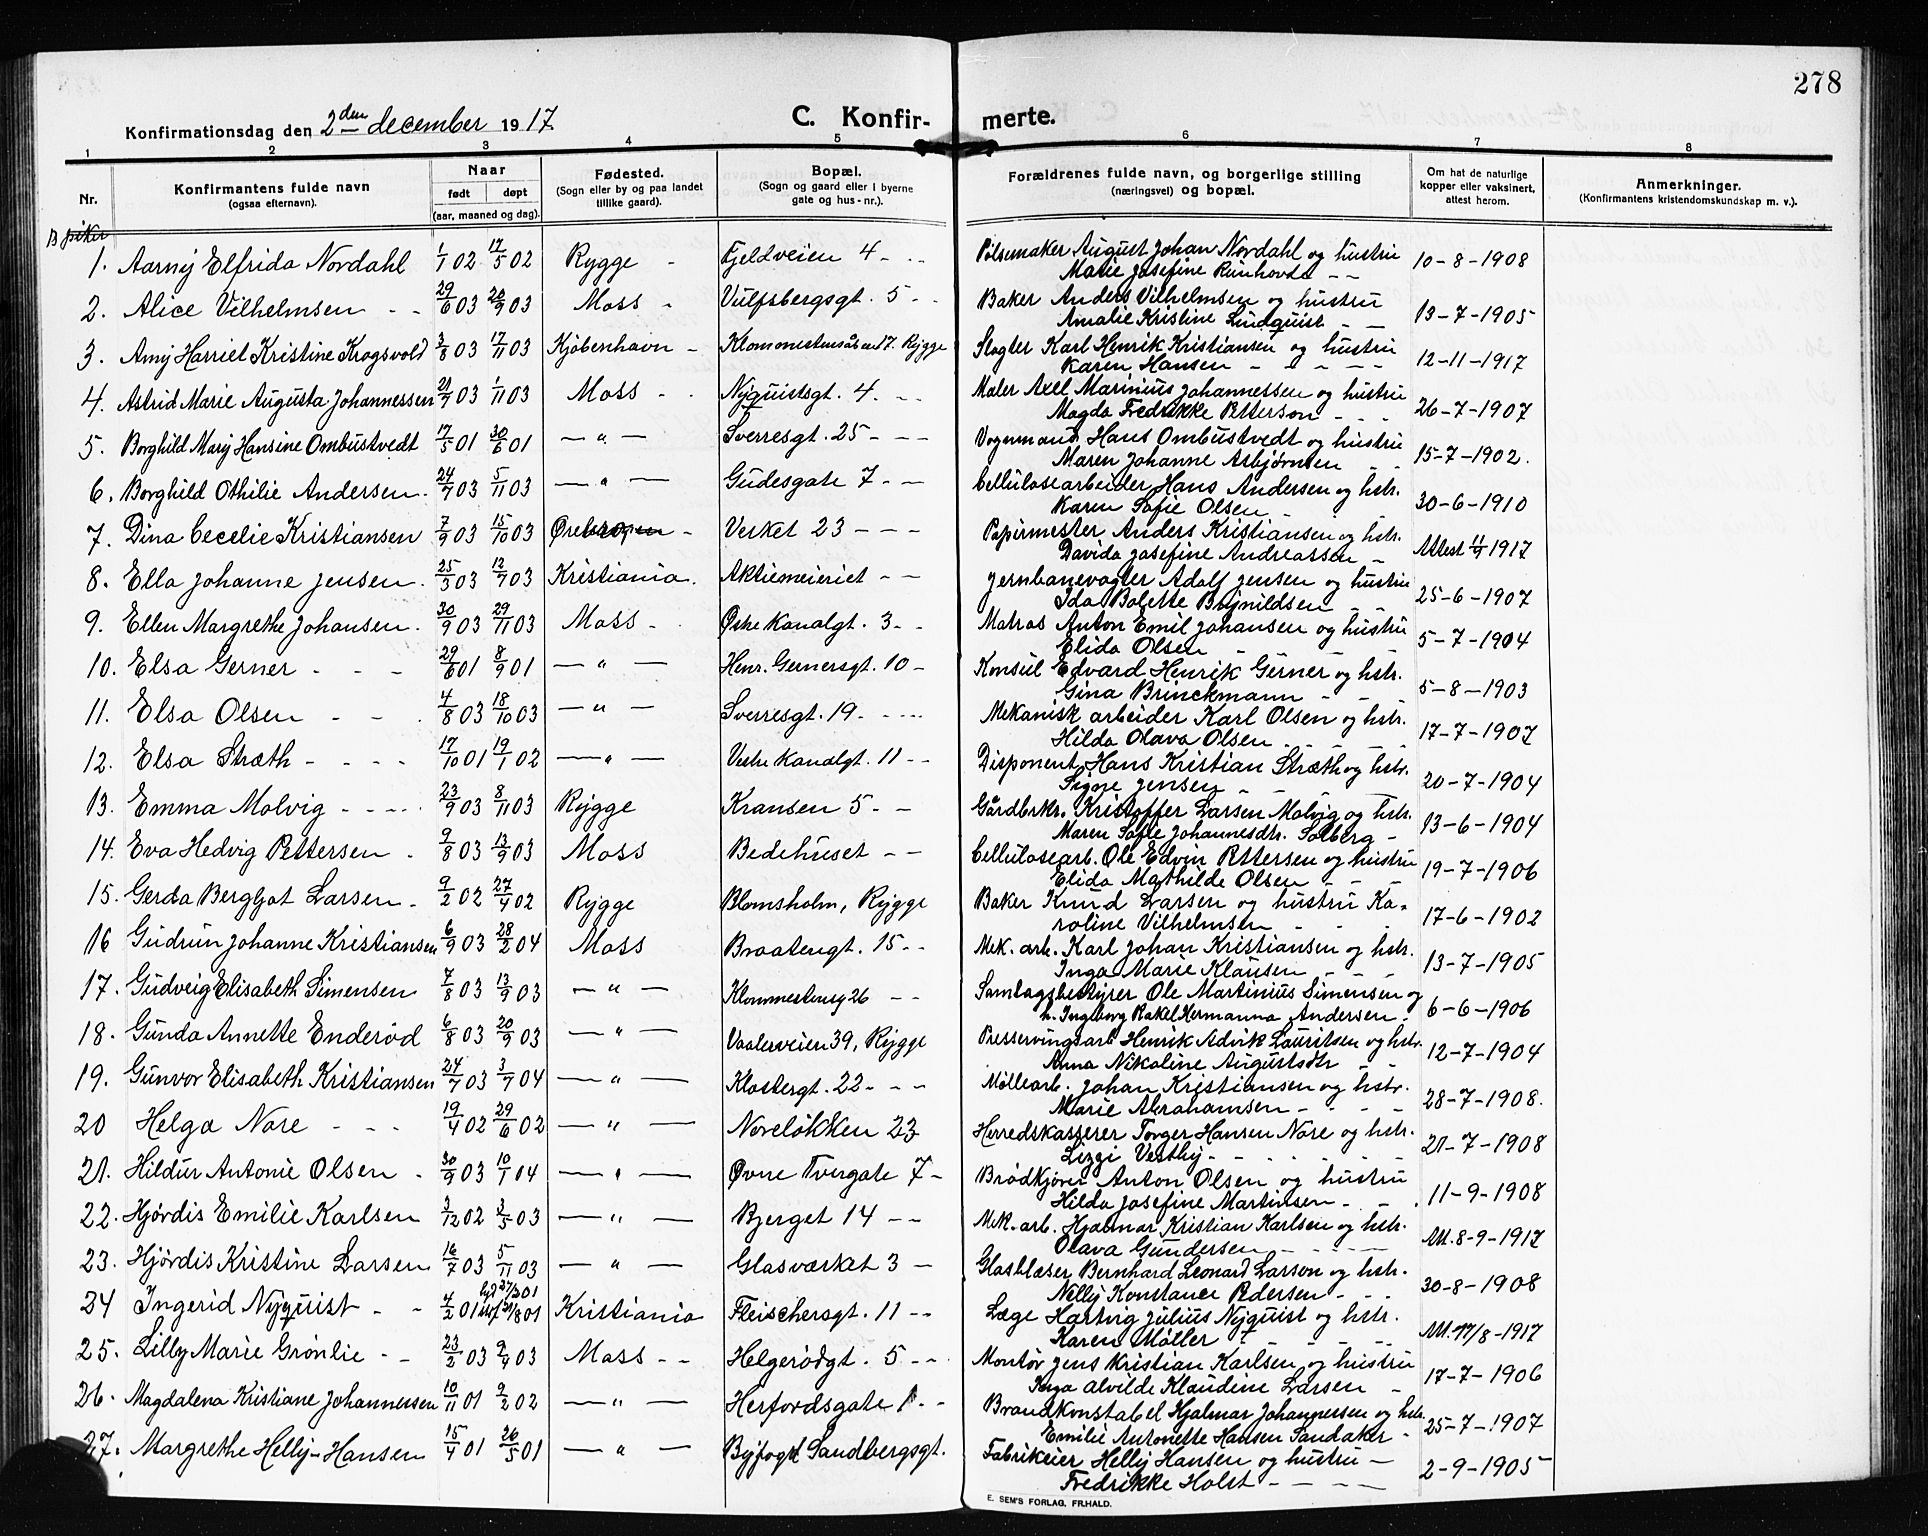 278
Konfirmationsdag den 2den december 1917
C. Konfir- merte.
1 2 3 4 5 6 7 8
Nr.
Konfirmantens fulde navn (ogsaa efternavn).
Naar født døpt (aar, maaned og dag).
Fødested. (Sogn eller by og paa landet tillike gaard).
Bopæl. (Sogn og gaard eller i byerne gate og hus-nr.).
Forældrenes fulde navn, og borgerlige stilling (næringsvei) og bopæl.
Om hat de naturlige kopper eller vaksinert, attest herom.
Anmerkninger. (Konfirmantens kristendomskundskap m. v.).
B piker
1. Aarny Elfrida Nordahl 1/1 02 17/5 02 Rygge - Fjeldveien 4 - Pølsemaker August Johan Nordahl og hustru 10-8-1908
Marie Josefine Rimhovde - -
2. Alice Vilhelmsen - - 29/6 03 20/9 03 Moss - Vulfsbergsgt. 5 - - Baker Anders Vilhelmsen og hustru 13-7-1905
Amalie Kristine Lundquist - -
3. Amy Harriet Kristine Krogsvold 3/8 03 17/11 03 Kjøbenhavn - 17. Rygge Slagter Karl Henrik Kristiansen og hustru 12-11-1917
Karen Hansen - - - -
4. Astrid Marie Augusta Johannessen 21/7 03 1/11 03 Moss - - Nyquistsgt. 4. - - Maler Axel Marinius Johannessen og hustru 26-7-1907
Magda Fredrikke Petterson - - -
5. Borghild Mary Hansine Ombustvedt 17/5 01 30/6 01 — " — Sverresgt. 25 - - - Vognmand Hans Ombustvedt og hustru 15-7-1902.
Maren Johanne Asbjørnsen - -
6. Borghild Othilie Andersen. 24/7 03 5/11 03 — " — Gudesgate 7 - - Cellulosearbeider Hans Andersen og hstr. 30-6-1910
Karen Sofie Olsen -
7. Dina Cecelie Kristiansen 7/9 03 15/10 03 - Verket 23 - - - Papirmester Anders Kristiansen og hstr. Attest 11/9 1917
Davida Josefine Andreassen -
8. Ella Johanne Jensen. 25/3 03 12/7 03 Kristiania. Aktiemeieriet - - Jernbanevogter Adolf Jensen og hustru 25-6-1907
Ida Bolette Brynildsen - -
9. Ellen Margrethe Johansen. 30/9 03 29/11 03 Moss - Østre Kanalgt. 3 - - Matros Anton Emil Johansen og hustru 5-7-1904
Elida Olsen -
10. Elsa Gerner - - - 29/6 01 8/9 01 — " — Henr. Gernersgt. 10 - Konsul Edvard Henrik Gerner og hstr. 5-8-1903
Gina Brinckmann - - -
11. Elsa Olsen - - 4/8 03 18/10 03 — " — Sverresgt. 19 - - - - Mekanisk arbeider Karl Olsen og hstr. 17-7-1907
Hilda Olava Olsen - - - -
12. Elsa Stræth - - - - 17/10 01 19/1 02 — " — Vestre Kanalgt. 11 - - Disponent Hans Kristian Stræth og hstr. 20-7-1904
Signe Jensen - - - -
13. Emma Molvig - - - - 23/9 03 8/11 03 Rygge Kransen 5 - - Gårdbrkr. Kristoffer Larsen Molvig og hstr. 13-6-1904
Maren Sofie Johannesdtr. Solberg -
14. Eva Hedvig Pettersen - 9/8 03 13/9 03 Moss Bedehuset - - Cellulosearb. Ole Edvin Pettersen og hustru 19-7-1906
Elida Mathilde Olsen - - -
15. Gerda Bergljot Larsen - 9/2 02 27/4 02 Rygge Blomsholm, Rygge Baker Knud Larsen og hustru Ka- 17-6-1902
roline Vilhelmsen - - -
16 Gudrun Johanne Kristiansen 6/9 03 28/2 04 Moss Braatengt. 15 - - Mek. arb. Karl Johan Kristiansen og hstr. 13-7-1905
Inga Marie Klausen - - -
17. Gudveig Elisabeth Simensen 7/8 03 13/9 03 — " — 26 - - Samlagsbestyrer Ole Martinius Simensen og 6-6-1906
h. Ingeborg Rakel Hermanna Andersen -
18. Gunda Annette Enderød 6/8 03 20/9 03 — " — Vaalerveien 39, Rygge Presserringsarb Henrik Advik Lauritsen og hstr. 12-7-1904
Anna Nikoline Augustsdtr - -
19. Gunvor Elisabeth Kristiansen 24/7 03 3/7 04 — " — Klostergt. 22 - - - Møllearb. Johan Kristiansen og hstr. 28-7-1908.
Marie Abrahamsen - - - -
20 Helga Nore - - - 19/4 02 29/6 02 — " — Noreløkken 23 Herredskasserer Torger Hansen Nore og hstr. 21-7-1908
Lizzi Vestby - - - - - -
21. Hildur Antonie Olsen - 30/9 03 10/1 04 — " — Øvre Tvergate 7 - Brødkjører Anton Olsen og hustru 11-9-1908
Hilda Josefine Martinsen - - -
22. Hjørdis Emilie Karlsen 3/12 02 3/5 03 — " — Bjerget 14 - - Mek. arb. Hjalmar Kristian Karlsen og hstr. Att. 8-9-1917
Olava Gundersen - - - -
23. Hjørdis Kristine Larsen 16/7 03 5/11 03 — " — Glasværket 3 - Glasblæser Bernhard Leonard Larson og hstr. 30-8-1908
Nelly Konstance Pedersen - - -
24 Ingerid Nyquist - - 4/2 01 27/3 01 31/8 01 Kristiania Fleischersgt. 11 - - Læge Hartvig Julius Nyquist og hstr. Att. 17/8-1917
Karen Møller - - -
25. Lilly Marie Grønlie - - 23/2 03 9/4 03 Moss - - Helgerødgt. 5 - - Montør Jens Kristian Karlsen og hustru 17-7-1906
Inga Alvilde Klaudine Larsen -
26. Magdalena Kristiane Johannessen 10/11 01 9/2 02 — " — Herfordsgate 1 - - Brandkonstabel Hjalmar Johannessen og hstr. 25-7-1907
Emilie Antonette Hansen Sandaker -
27. Margrethe Helly-Hansen 15/4 01 26/5 01 — " — Byfogd Sandbergsgt. Fabrikeier Helly Hansen og hustru - 2-9-1905
Fredrikke Holst - - - -
E. SEM'S FORLAG, FR.HALD.